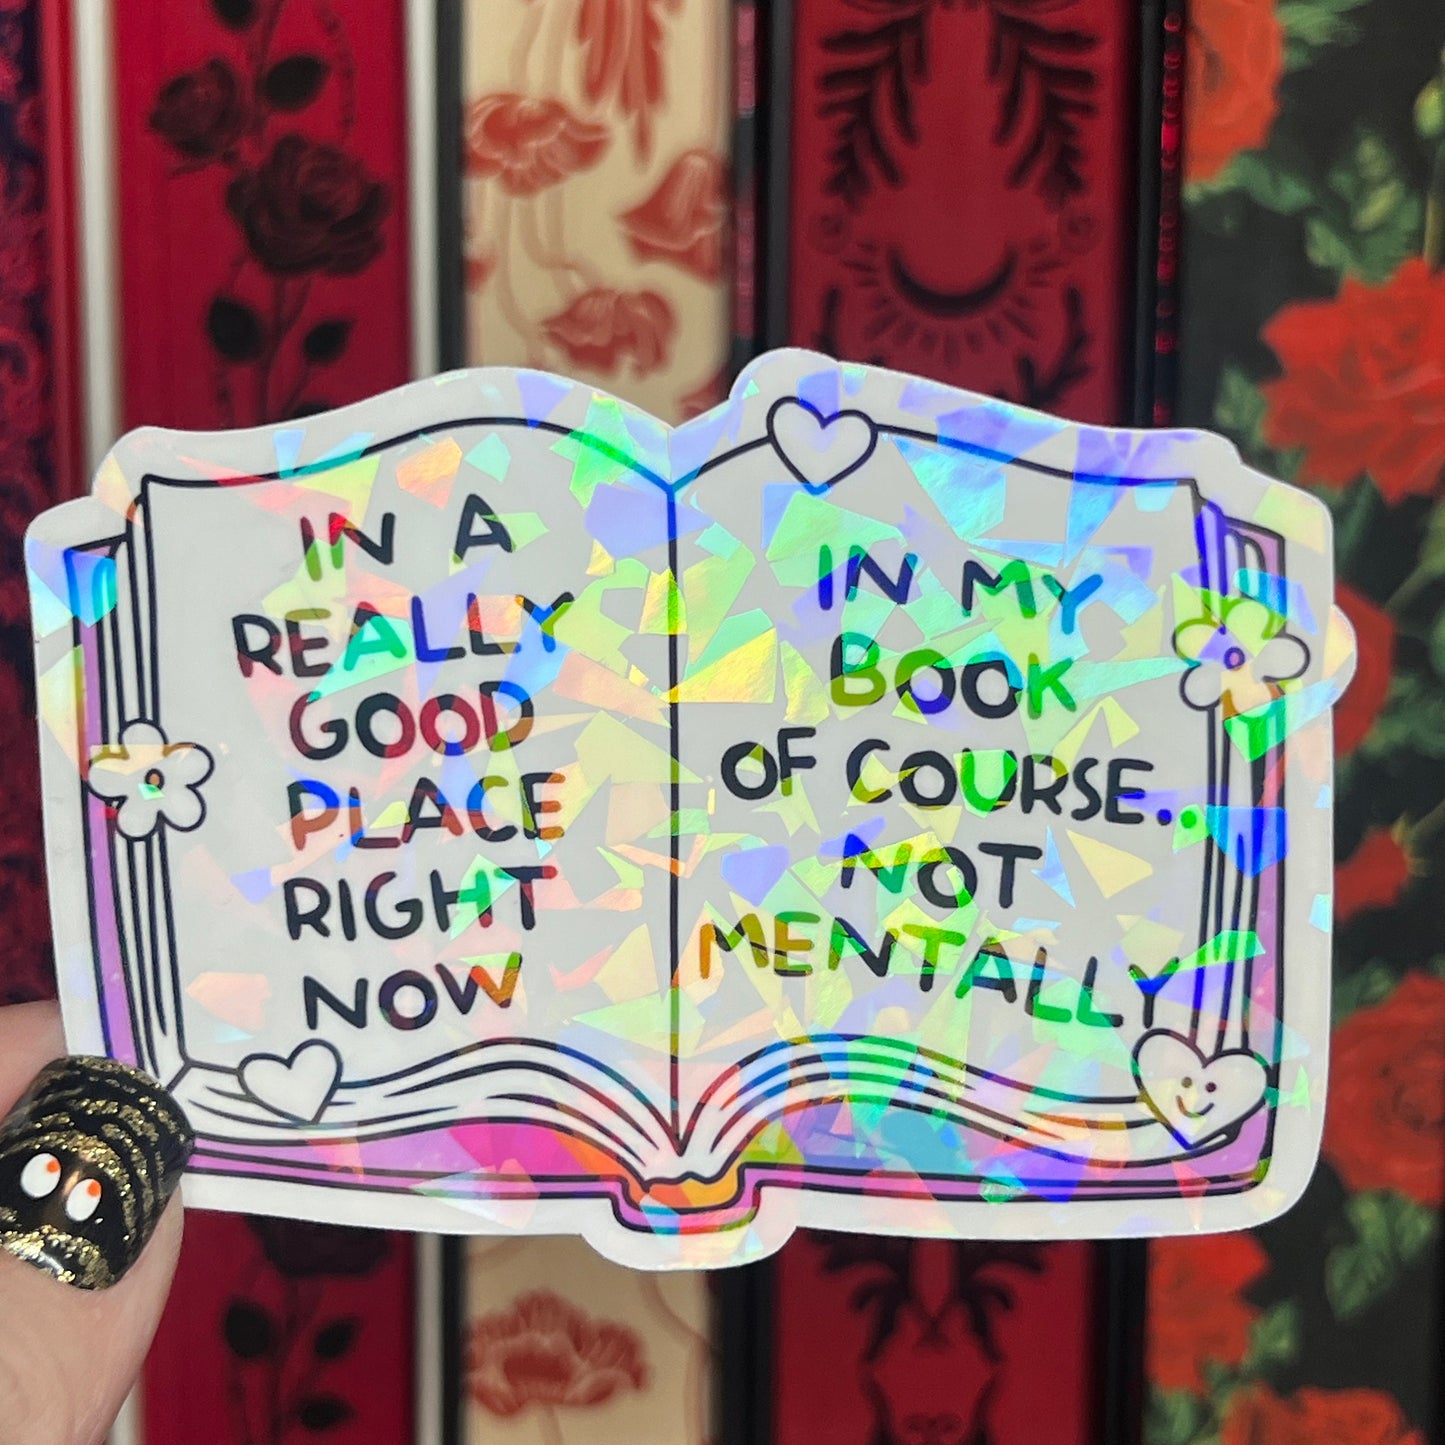 IN A
REALLY
GOOD
PLACE
RIGHT
NOW
IN MY
BOOK
OF COURSE..
NOT
MENTALLY